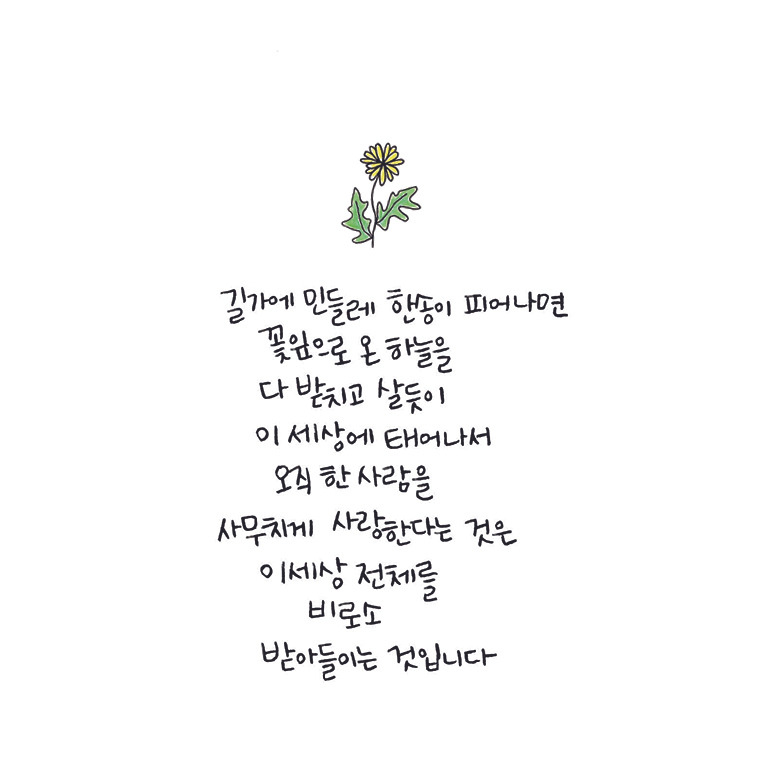 길가에 민들레 한송이 피어나면
꽃잎으로 온 하늘을
다 받치고 살듯이
이 세상에 태어나서
오직 한 사람을
사무치게 사랑한다는 것은
이세상 전체를
비로소
받아들이는 것입니다